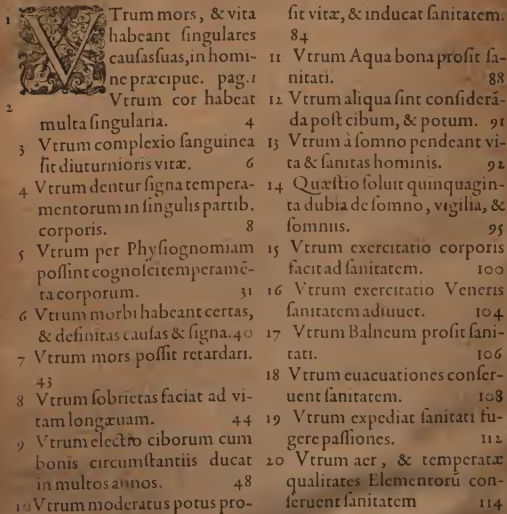 1 VTrum mors, & vita
habeant ſingulares
cauſas ſuas, in homi-
ne præcipue. pag.1
2 Vtrum cor habeat
multa ſingularia. 4
3 Vtrum complexio ſanguinea
ſit diuturnioris vitæ. 6
4 Vtrum dentur ſigna tempera-
mentorum in ſingulis partib.
corporis. 8
5 Vtrum per Phyſiognomiam
poſſint cognoſci temperamē-
ta corporum. 31
6 Vtrum morbi habeant certas,
& definitas cauſas & ſigna. 40
7 Vtrum mors poſſit retardari.
43
8 Vtrum ſobrietas faciat ad vi-
tam longæuam. 44
9 Vtrum electio ciborum cum
bonis circumſtantiis ducat
in multos annos. 48
10 Vtrum moderatus potus pro-
ſit vitæ, & inducat ſanitatem.
84
11 Vtrum Aqua bona proſit ſa-
nitati. 88
12 Vtrum aliqua ſint conſiderā-
da poſt cibum, & potum. 91
13 Vtrum à ſomno pendeant vi-
ta & ſanitas hominis. 92
14 Quæſtio ſoluit quinquagin-
ta dubia de ſomno, vigilia, &
ſomniis. 95
15 Vtrum exercitatio corporis
facit ad ſanitatem. 100
16 Vtrum exercitatio Veneris
ſanitatem adiuuet. 104
17 Vtrum Balneum proſit ſani-
tati. 106
18 Vtrum euacuationes conſer-
uent ſanitatem. 108
19 Vtrum expediat ſanitati fu-
gere paſſiones. 112
20 Vtrum aer, & temperatæ
qualitates Elementorū con-
ſeruent ſanitatem 114